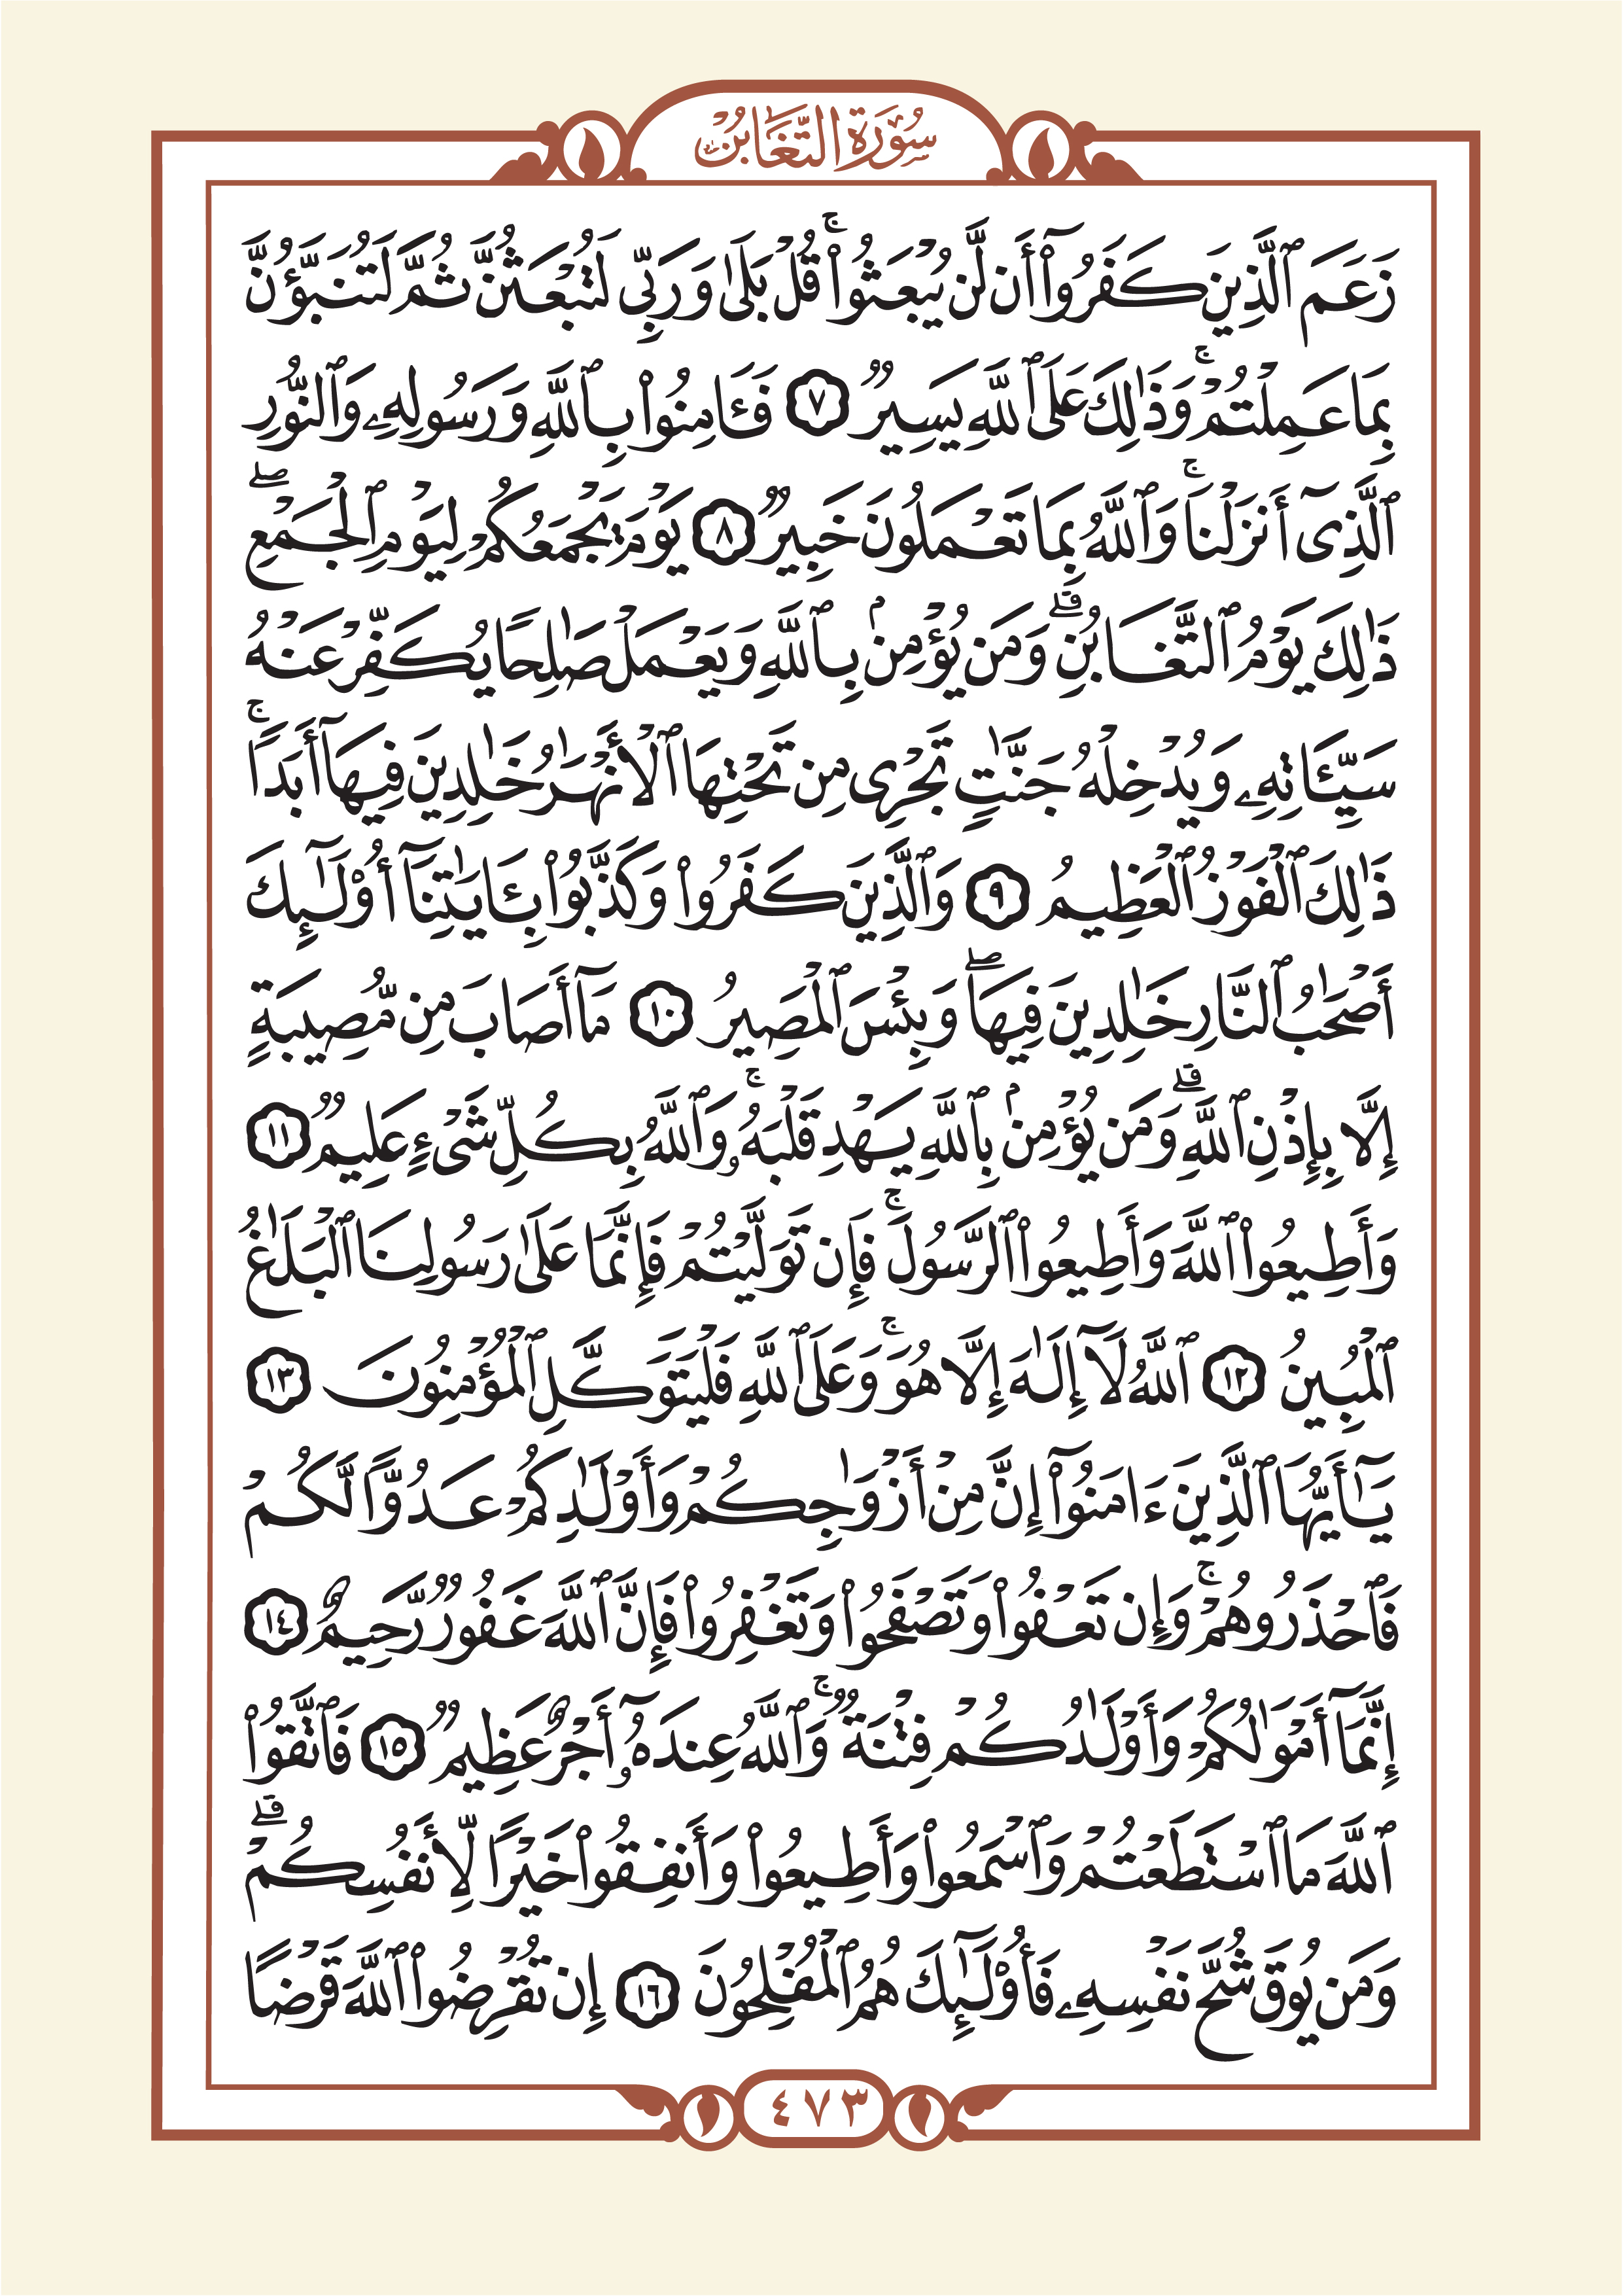 سُورَةُ التَّغَابُنِ
زَعَمَ ٱلَّذِينَ كَفَرُوٓا۟ أَن لَّن يُبْعَثُوا۟ ۚ قُلْ بَلَىٰ وَرَبِّى لَتُبْعَثُنَّ ثُمَّ لَتُنَبَّؤُنَّ
بِمَا عَمِلْتُمْ ۚ وَذَٰلِكَ عَلَى ٱللَّهِ يَسِيرٌ ٧ فَـَٔامِنُوا۟ بِٱللَّهِ وَرَسُولِهِۦ وَٱلنُّورِ
ٱلَّذِىٓ أَنزَلْنَا ۚ وَٱللَّهُ بِمَا تَعْمَلُونَ خَبِيرٌ ٨ يَوْمَ يَجْمَعُكُمْ لِيَوْمِ ٱلْجَمْعِ ۖ
ذَٰلِكَ يَوْمُ ٱلتَّغَابُنِ ۗ وَمَن يُؤْمِنۢ بِٱللَّهِ وَيَعْمَلْ صَـٰلِحًا يُكَفِّرْ عَنْهُ
سَيِّـَٔاتِهِۦ وَيُدْخِلْهُ جَنَّـٰتٍ تَجْرِى مِن تَحْتِهَا ٱلْأَنْهَـٰرُ خَـٰلِدِينَ فِيهَآ أَبَدًا ۚ
ذَٰلِكَ ٱلْفَوْزُ ٱلْعَظِيمُ ٩ وَٱلَّذِينَ كَفَرُوا۟ وَكَذَّبُوا۟ بِـَٔايَـٰتِنَآ أُو۟لَـٰٓئِكَ
أَصْحَـٰبُ ٱلنَّارِ خَـٰلِدِينَ فِيهَا ۖ وَبِئْسَ ٱلْمَصِيرُ ١٠ مَآ أَصَابَ مِن مُّصِيبَةٍ
إِلَّا بِإِذْنِ ٱللَّهِ ۗ وَمَن يُؤْمِنۢ بِٱللَّهِ يَهْدِ قَلْبَهُۥ ۚ وَٱللَّهُ بِكُلِّ شَىْءٍ عَلِيمٌ ١١
وَأَطِيعُوا۟ ٱللَّهَ وَأَطِيعُوا۟ ٱلرَّسُولَ ۚ فَإِن تَوَلَّيْتُمْ فَإِنَّمَا عَلَىٰ رَسُولِنَا ٱلْبَلَـٰغُ
ٱلْمُبِينُ ١٢ ٱللَّهُ لَآ إِلَـٰهَ إِلَّا هُوَ ۚ وَعَلَى ٱللَّهِ فَلْيَتَوَكَّلِ ٱلْمُؤْمِنُونَ ١٣
يَـٰٓأَيُّهَا ٱلَّذِينَ ءَامَنُوٓا۟ إِنَّ مِنْ أَزْوَٰجِكُمْ وَأَوْلَـٰدِكُمْ عَدُوًّا لَّكُمْ
فَٱحْذَرُوهُمْ ۚ وَإِن تَعْفُوا۟ وَتَصْفَحُوا۟ وَتَغْفِرُوا۟ فَإِنَّ ٱللَّهَ غَفُورٌ رَّحِيمٌ ١٤
إِنَّمَآ أَمْوَٰلُكُمْ وَأَوْلَـٰدُكُمْ فِتْنَةٌ ۚ وَٱللَّهُ عِندَهُۥٓ أَجْرٌ عَظِيمٌ ١٥ فَٱتَّقُوا۟
ٱللَّهَ مَا ٱسْتَطَعْتُمْ وَٱسْمَعُوا۟ وَأَطِيعُوا۟ وَأَنفِقُوا۟ خَيْرًا لِّأَنفُسِكُمْ ۗ
وَمَن يُوقَ شُحَّ نَفْسِهِۦ فَأُو۟لَـٰٓئِكَ هُمُ ٱلْمُفْلِحُونَ ١٦ إِن تُقْرِضُوا۟ ٱللَّهَ قَرْضًا
٤٧٣